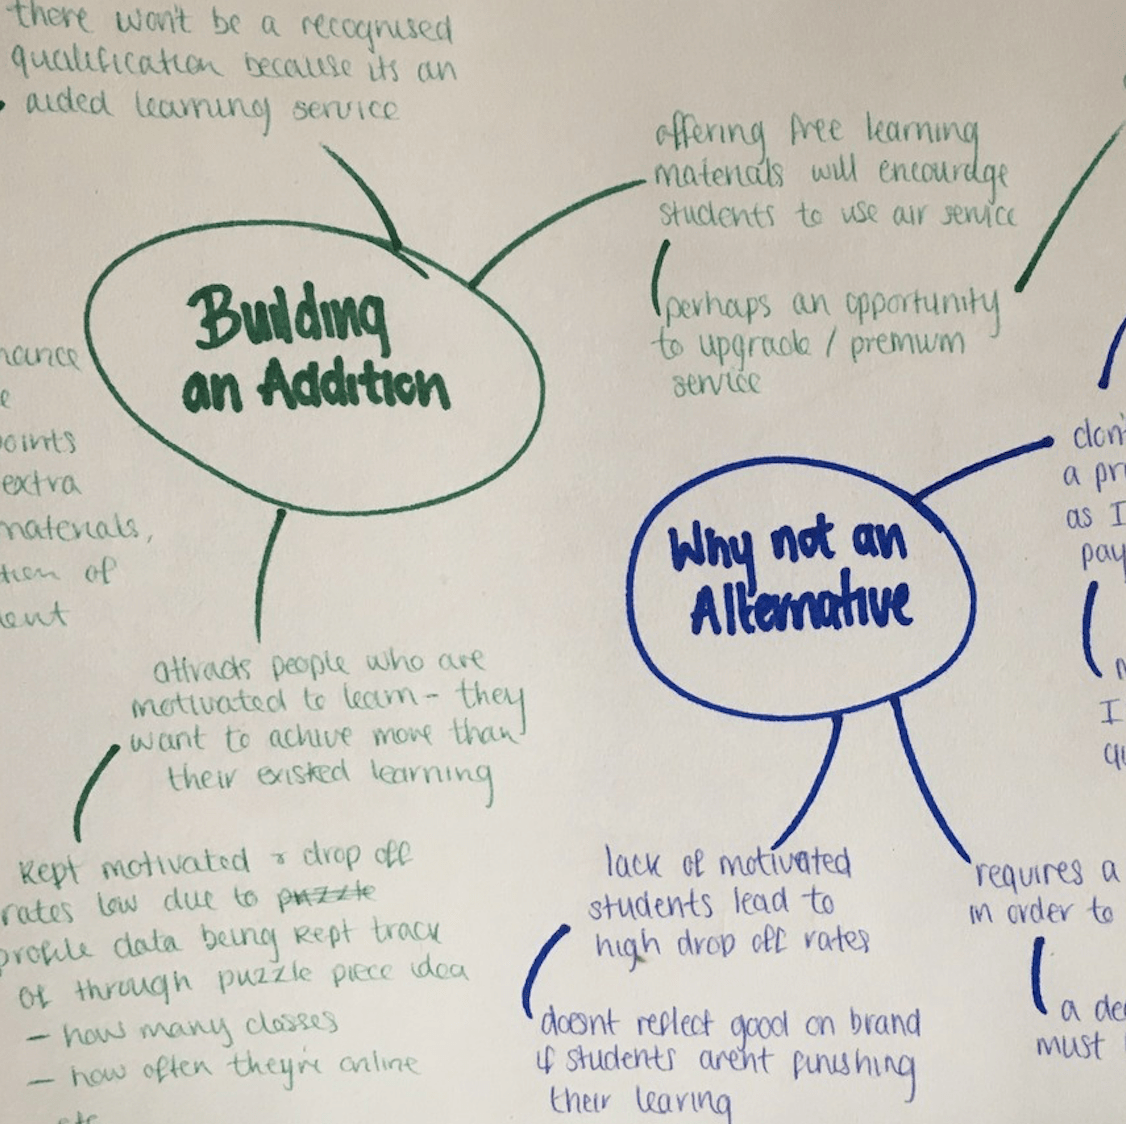 there won't be a recognised
qualification because its an
aided learning service
offering free learning
materials will encourage
students to use air service
perhaps an opportunity
to upgrade / premium
service
Building
an Addition
points
extra
materials,
of
attracts people who are
motivated to learn - they
want to achive more than
their existed learning
Kept motivated & drop off
rates low due to puzzle
profile data being kept track
of through puzzle piece idea
- how many classes
- how often they're online
etc
Why not an
Alternative
a
as I
pay
I
lack of motivated
students lead to
high drop off rates
doesnt reflect good on brand
if students arent finishing
their learing
requires a
in order to
a
must